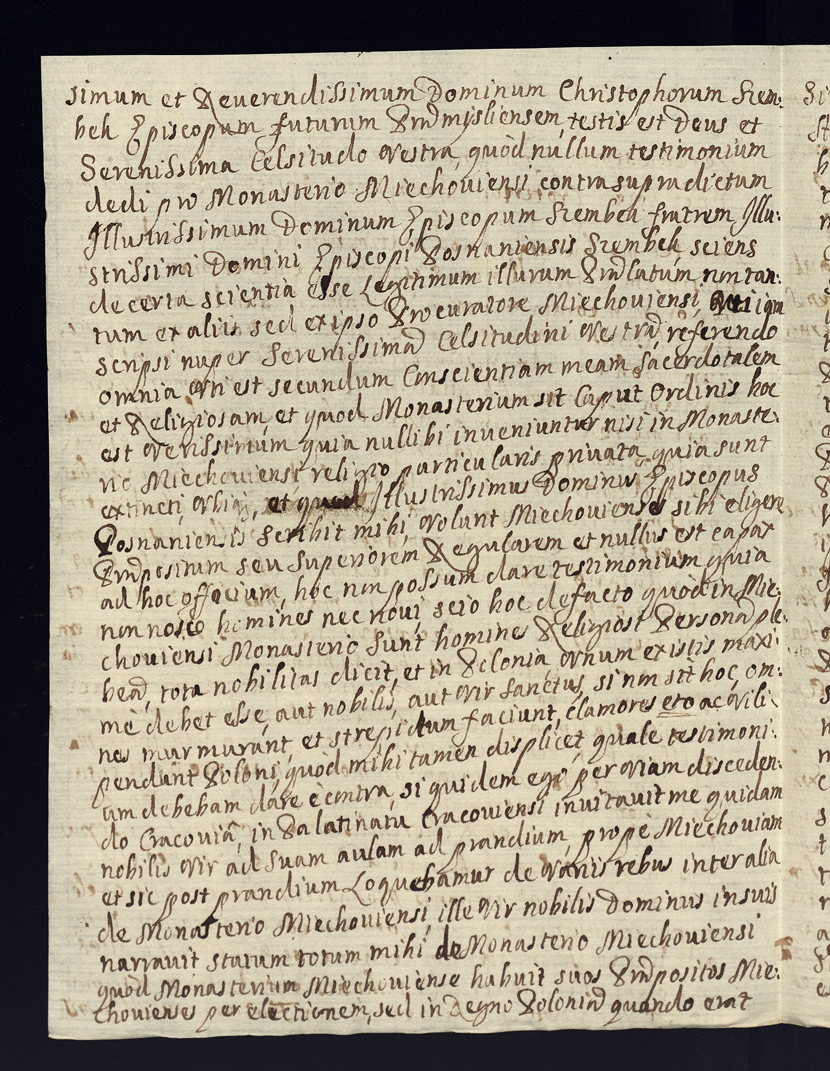 simum et Reverendissimum Dominum Christophorum Szem:
bek Episcopum futurum Præmisliensem, testis est Deus et
Serenissima Celsitudo Vestra, quòd nullum testimonium
dedi pro Monasterio Miechoviensi contra supradictum
Illustrissimum Dominum Episcopum Szembek fratrem Illu:
strissimi Domini Episcopi Posnaniensis Szembek, sciens
de certa scientia esse Legitimum illurum Prælatum, non tan:
tum ex aliis sed ex ipso Procuratore Miechoviensi,
scripsi nuper Serenissimæ Celsitudini Vestræ, referendo
omnia Uti est secundum Conscientiam meam Sacerdotalem
et Religiosam, et quod Monasterium sit Caput Ordinis hoc
est Verissimum, quia nullibi inveniuntur nisi in Monaste:
rio Miechoviensi religio particularis privata, quia sunt
extincti Ubique, et quod Illustrissimus Dominus Episcopus
Posnaniensis scribit mihi, Volunt Miechovienses sibi eligere
Præpositum seu Superiorem Regularem et nullus est capax
ad hoc officium, hoc non possum dare testimonium quia
non nosco homines nec novi, scio hoc de facto quòd in Mie:
choviensi Monasterio Sunt homines Religiosi Personæ ple:
beæ, tota nobilitas dicit, et in Polonia Unum existis maxi:
mè debet esse, aut nobilis, aut Vir Sanctus, si non sit hoc, om:
nes murmurant, et strepidum faciunt, clamores etc ac Vili:
pendunt Poloni, quòd mihi tamen displicet, quale testimoni:
um debebam dare è contra, siquidem ego per Viam disceden:
do Cracoviâ, in Palatinatu Cracoviensi invitavit me quidam
nobilis Vir ad Suam aulam ad prandium, propè Miechoviam
et sic post prandium Loquebamur de Variis rebus inter alia
de Monasterio Miechoviensi, ille Vir nobilis Dominus in suis
narravit statum totum mihi de Monasterio Miechoviensi
quòd Monasterium Miechoviense habuit suos Præpositos Mie:
chovienses per electionem, sed in Regno Poloniæ quando erat